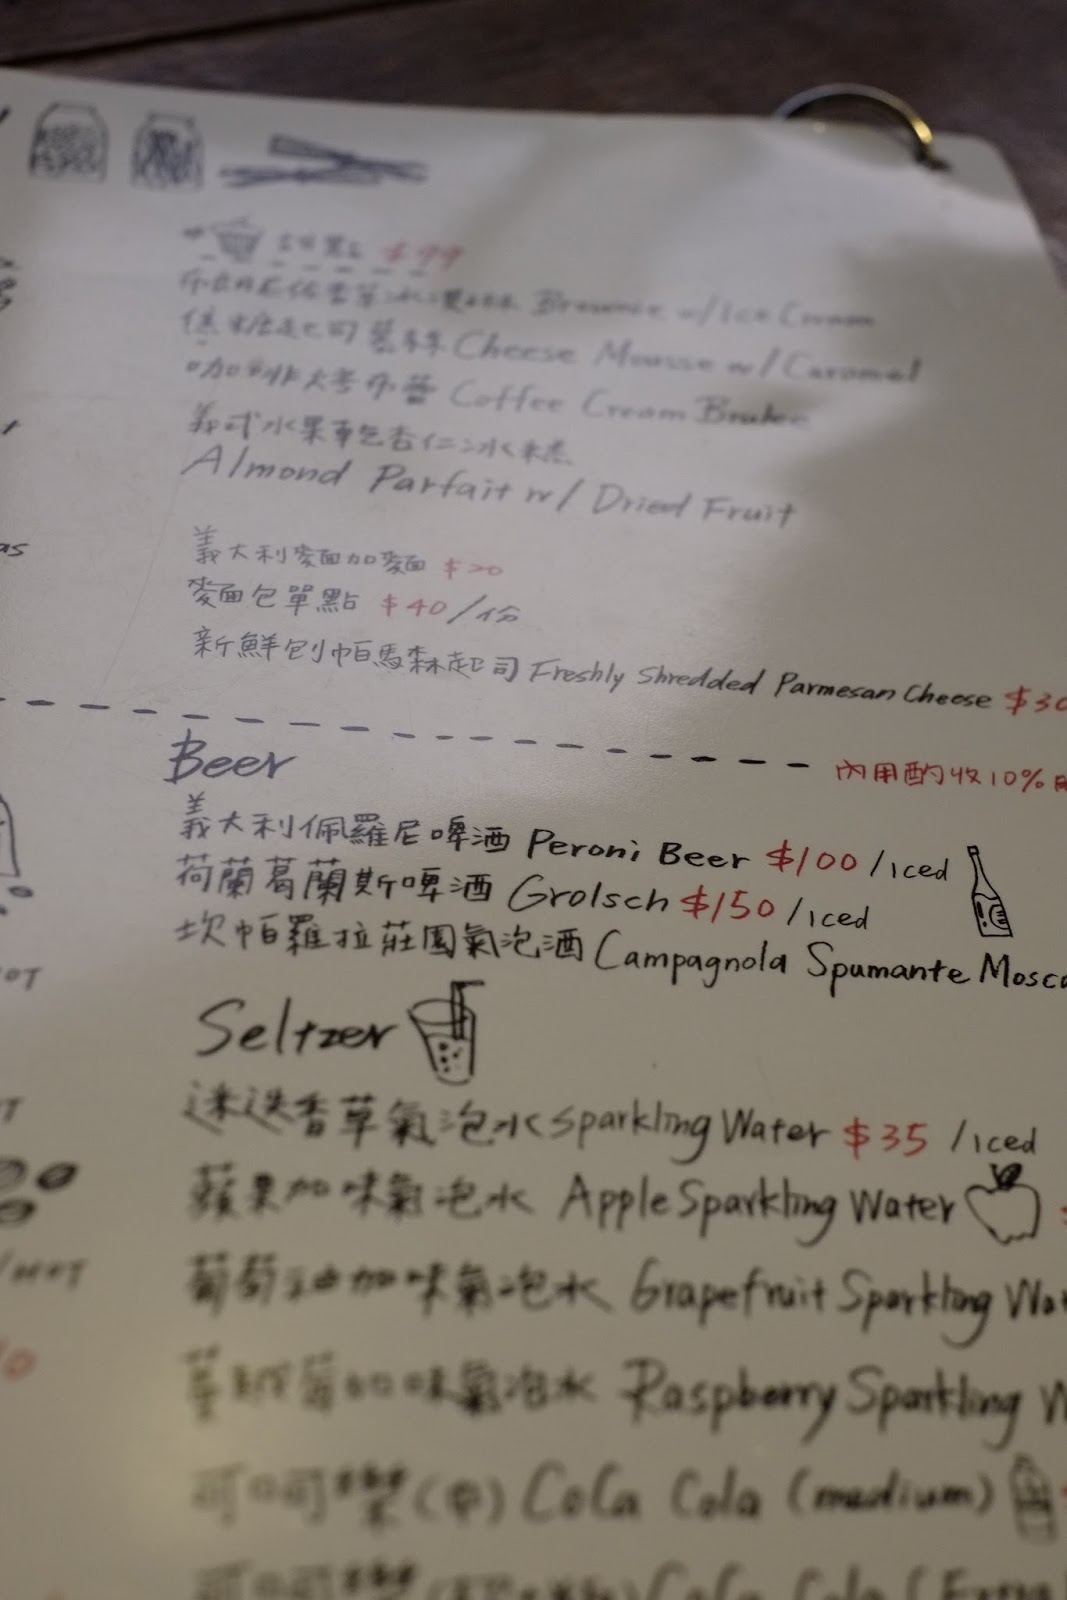 甜點 $99
布朗尼佐香草冰淇淋 Brownie w/ Ice Cream
焦糖起司慕斯 Cheese Mousse w/ Caramel
咖啡烤布蕾 Coffee Cream Brulee
義式水果乾杏仁冰糕
Almond Parfait w/ Dried Fruit
義大利麵加麵 $20
麵包單點 $40/份
新鮮刨帕馬森起司 Freshly Shredded Parmesan Cheese $30
內用酌收10%
Beer
義大利佩羅尼啤酒 Peroni Beer $100 /iced
荷蘭葛蘭斯啤酒 Grolsch $150 /iced
坎帕羅拉莊園氣泡酒 Campagnola Spumante Mosca
Seltzer
迷迭香草氣泡水 Sparkling Water $35 /iced
蘋果加味氣泡水 Apple Sparkling Water
葡萄柚加味氣泡水 Grapefruit Sparkling Wat
蔓越莓加味氣泡水 Raspberry Sparkling W
可口可樂(中) CoCa Cola (medium)
可口可樂 CoCa Cola (Extra